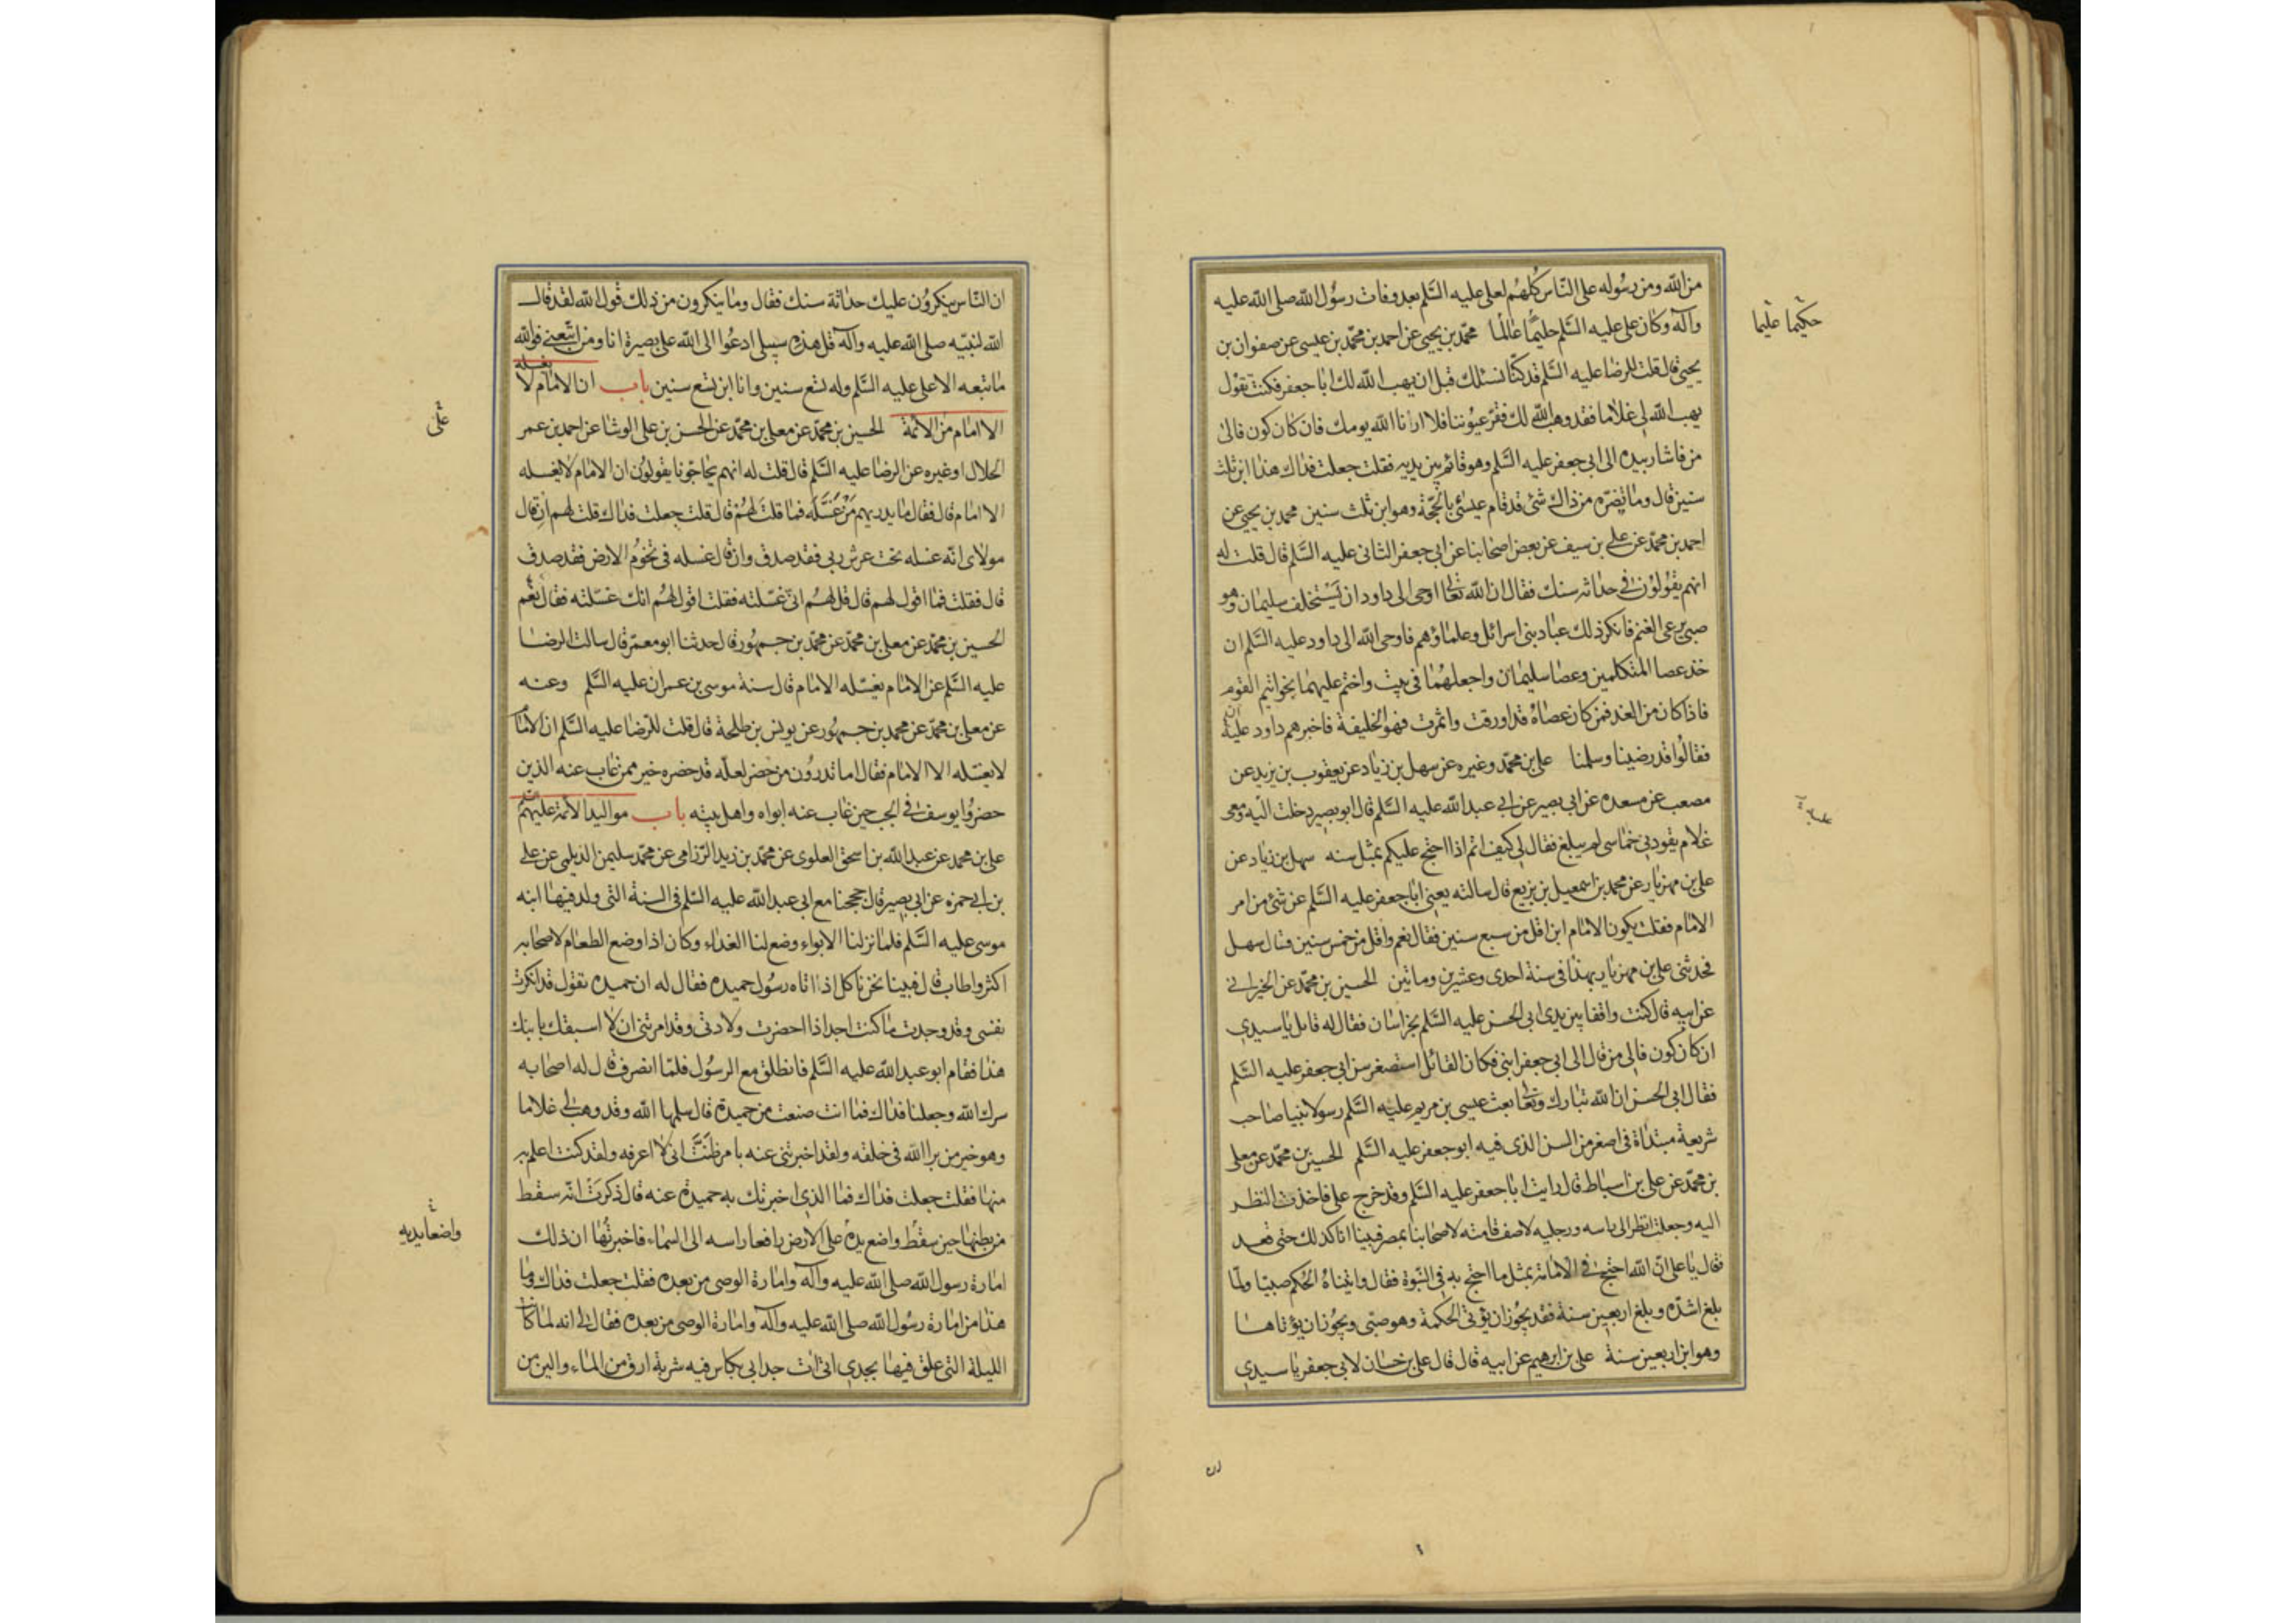 من الله ومن رسوله على الناس كلهم لعلي عليه السلم بعد وفات رسول الله صلى الله عليه
وآله وكان علي عليه السلم حليما عالما محمد بن يحيى عن احمد بن محمد بن عيسى عن صفوان بن
حكيما عليما
يحيى قال قلت للرضا عليه السلم قد كنا نسئلك قبل ان يهب الله لك ابا جعفر فكنت تقول
يهب الله لي غلاما فقد وهب الله لك فقر عيوننا فلا ارانا الله يومك فان كان كون فالى
من فاشار بيده الى ابي جعفر عليه السلم وهو قائم بين يديه فقلت جعلت فداك هذا ابن ثلث
سنين قال وما يضره من ذاك شئ قد قام عيسى بالحجة وهو ابن ثلث سنين محمد بن يحيى عن
احمد بن محمد عن علي بن سيف عن بعض اصحابنا عن ابي جعفر الثاني عليه السلم قال قلت له
انهم يقولون في حداثه سنك فقال ان الله تعالى اوحى الى داود ان يستخلف سليمان وهو
صبي يرعى الغنم فانكر ذلك عباد بني اسرائل وعلماؤهم فاوحى الله الى داود عليه السلم ان
خذ عصا المتكلمين وعصا سليمان واجعلهما في بيت واختم عليهما بخواتيم القوم
فاذا كان من الغد فمن كان عصاه قد اورقت واثمرت فهو الخليفة فاخبرهم داود عليه
فقالوا قد رضينا وسلمنا علي بن محمد وغيره عن سهل بن زياد عن يعقوب بن يزيد عن
مصعب عن مسعده عن ابي بصير عن ابي عبد الله عليه السلم قال ابو بصير دخلت اليه ومعي
غلام يقود بي خماسي لم يبلغ فقال لي كيف انتم اذا احتج عليكم بمثل سنه سهل بن زياد عن
علي بن مهزيار عن محمد بن اسمعيل بن بزيع قال سالته يعني ابا جعفر عليه السلم عن شئ من امر
الامام فقلت يكون الامام ابن اقل من سبع سنين فقال نعم واقل من خمس سنين فقال سهل
فحدثني علي بن مهزيار بهذا في سنة احدى وعشرين وماتين الحسين بن محمد عن الخيراني
عن ابيه قال كنت واقفا بين يدي ابي الحسن عليه السلم بخراسان فقال له قائل يا سيدي
ان كان كون فالى من قال الى ابي جعفر ابني فكان القائل استصغر سن ابي جعفر عليه السلم
فقال ابي الحسن ان الله تبارك وتعالى بعث عيسى بن مريم عليه السلم رسولا نبيا صاحب
شريعة مبتداة في اصغر من السن الذي فيه ابو جعفر عليه السلم الحسين بن محمد عن معلى
بن محمد عن علي بن اسباط قال رايت ابا جعفر عليه السلم وقد خرج علي فاخذت النظر
اليه وجعلت انظر الى راسه ورجليه لاصف قامته لاصحابنا بمصر فبينا انا كذلك حتى قعد
فقال يا علي ان الله احتج في الامامة بمثل ما احتج به في النبوة فقال واتيناه الحكم صبيا ولما
بلغ اشده وبلغ اربعين سنة فقد يجوز ان يؤتى الحكمة وهو صبي ويجوز ان يؤتاها
وهو ابن اربعين سنة علي بن ابرهيم عن ابيه قال قال علي بن حسان لابي جعفر يا سيدي
ان الناس ينكرون عليك حداثة سنك فقال وما ينكرون من ذلك قول الله لقد قال
الله لنبيه صلى الله عليه وآله قل هذه سبيلي ادعوا الى الله على بصيرة انا ومن اتبعني فوالله
ما تبعه الا علي عليه السلم وله تسع سنين وانا ابن تسع سنين باب ان الامام لا يغسله
الا امام من الائمة الحسين بن محمد عن معلى بن محمد عن الحسن بن علي الوشا عن احمد بن عمر
على
الحلال او غيره عن الرضا عليه السلم قال قلت له انهم يحاجونا يقولون ان الامام لا يغسله
الا امام قال فقال ما يدريهم من غسله فما قلت لهم قال قلت جعلت فداك قلت لهم ان قال
مولاي انه غسله تحت عرش ربي فقد صدق وان قال غسله في تخوم الارض فقد صدق
قال فقلت فما اقول لهم قال قل لهم اني غسلته فقلت اقول لهم انك غسلته فقال نعم
الحسين بن محمد عن معلى بن محمد عن محمد بن جمهور قال حدثنا ابو معمر قال سالت الرضا
عليه السلم عن الامام يغسله الامام قال سنة موسى بن عمران عليه السلم وعنه
عن معلى بن محمد عن محمد بن جمهور عن يونس بن طلحة قال قلت للرضا عليه السلم ان الامام
لا يغسله الا الامام فقال اما تدرون من حضر لعله قد حضره خير ممن غاب عنه الذين
حضروا يوسف في الجب حين غاب عنه ابواه واهل بيته باب مواليد الائمة عليهم
علي بن محمد عن عبد الله بن اسحق العلوي عن محمد بن زيد الرزامي عن محمد سليمن الديلمي عن علي
بن ابي حمزه عن ابي بصير قال حججنا مع ابي عبد الله عليه السلم في السنة التي ولد فيها ابنه
موسى عليه السلم فلما نزلنا الابواء وضع لنا الغداء وكان اذا وضع الطعام لاصحابه
اكثر واطاب قال فبينا نحن ناكل اذا اتاه رسول حميده فقال له ان حميده تقول قد انكرت
نفسي وقد وجدت ما كنت اجد اذا احضرت ولادتي وقد امرتني ان لا اسبقك بابنك
هذا فقام ابو عبد الله عليه السلم فانطلق مع الرسول فلما انصرف قال له اصحابه
سرك الله وجعلنا فداك فما انت صنعت من حميدة قال سلمها الله وقد وهب لي غلاما
وهو خير من برا الله في خلقه ولقد اخبرتني عنه بامر ظنت اني لا اعرفه ولقد كنت اعلم به
منها فقلت جعلت فداك فما الذي اخبرتك به حميدة عنه قال ذكرت انه سقط
من بطنها حين سقط واضع يده على الارض رافعا راسه الى السماء فاخبرتها ان ذلك
واضعا يديه
امارة رسول الله صلى الله عليه وآله وامارة الوصي من بعده فقلت جعلت فداك وما
هذا من امارة رسول الله صلى الله عليه وآله وامارة الوصي من بعده فقال لي انه لما كان
الليلة التي علق فيها بجدي اتى ات جد ابي بكاس فيه شربة ارق من الماء والين من